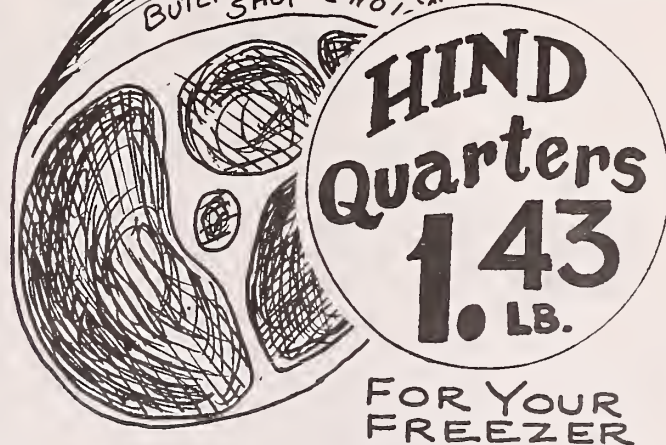 HIND
Quarters
1.43
LB.
FOR YOUR
FREEZER